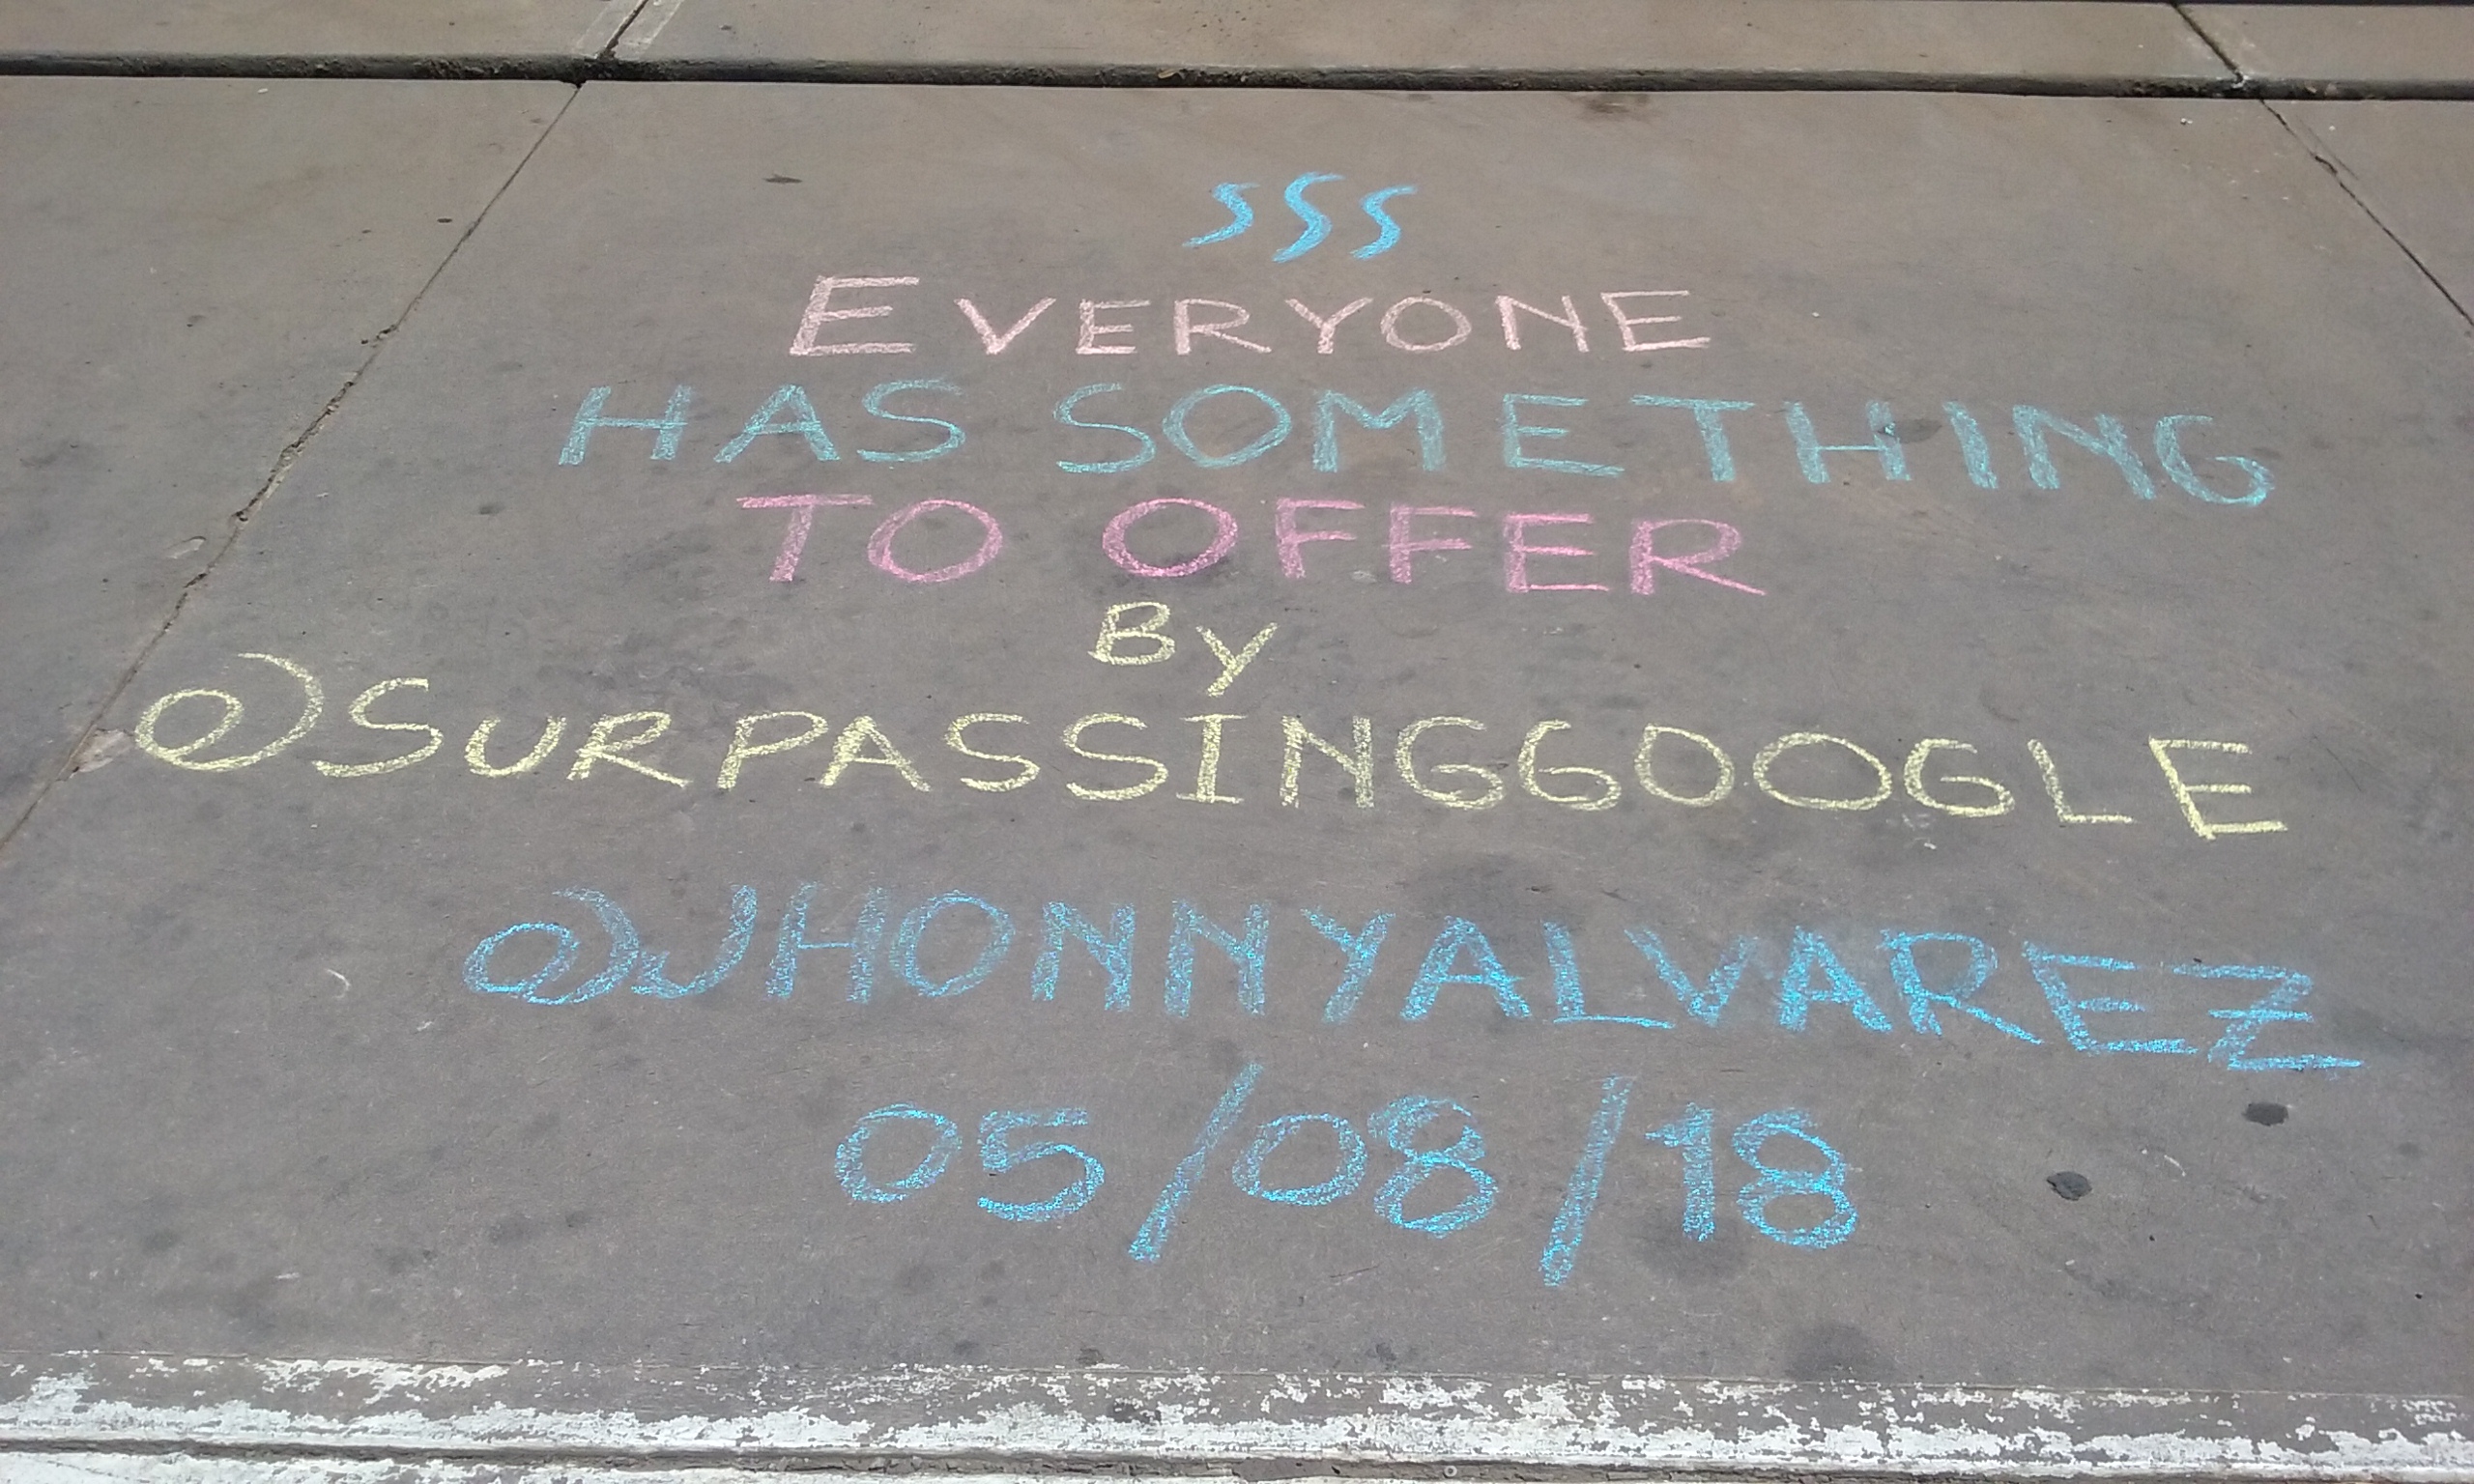 SSS
EVERYONE
HAS SOMETHING
TO OFFER
By
@SURPASSINGGOOGLE
@JHONNYALVAREZ
05/08/18